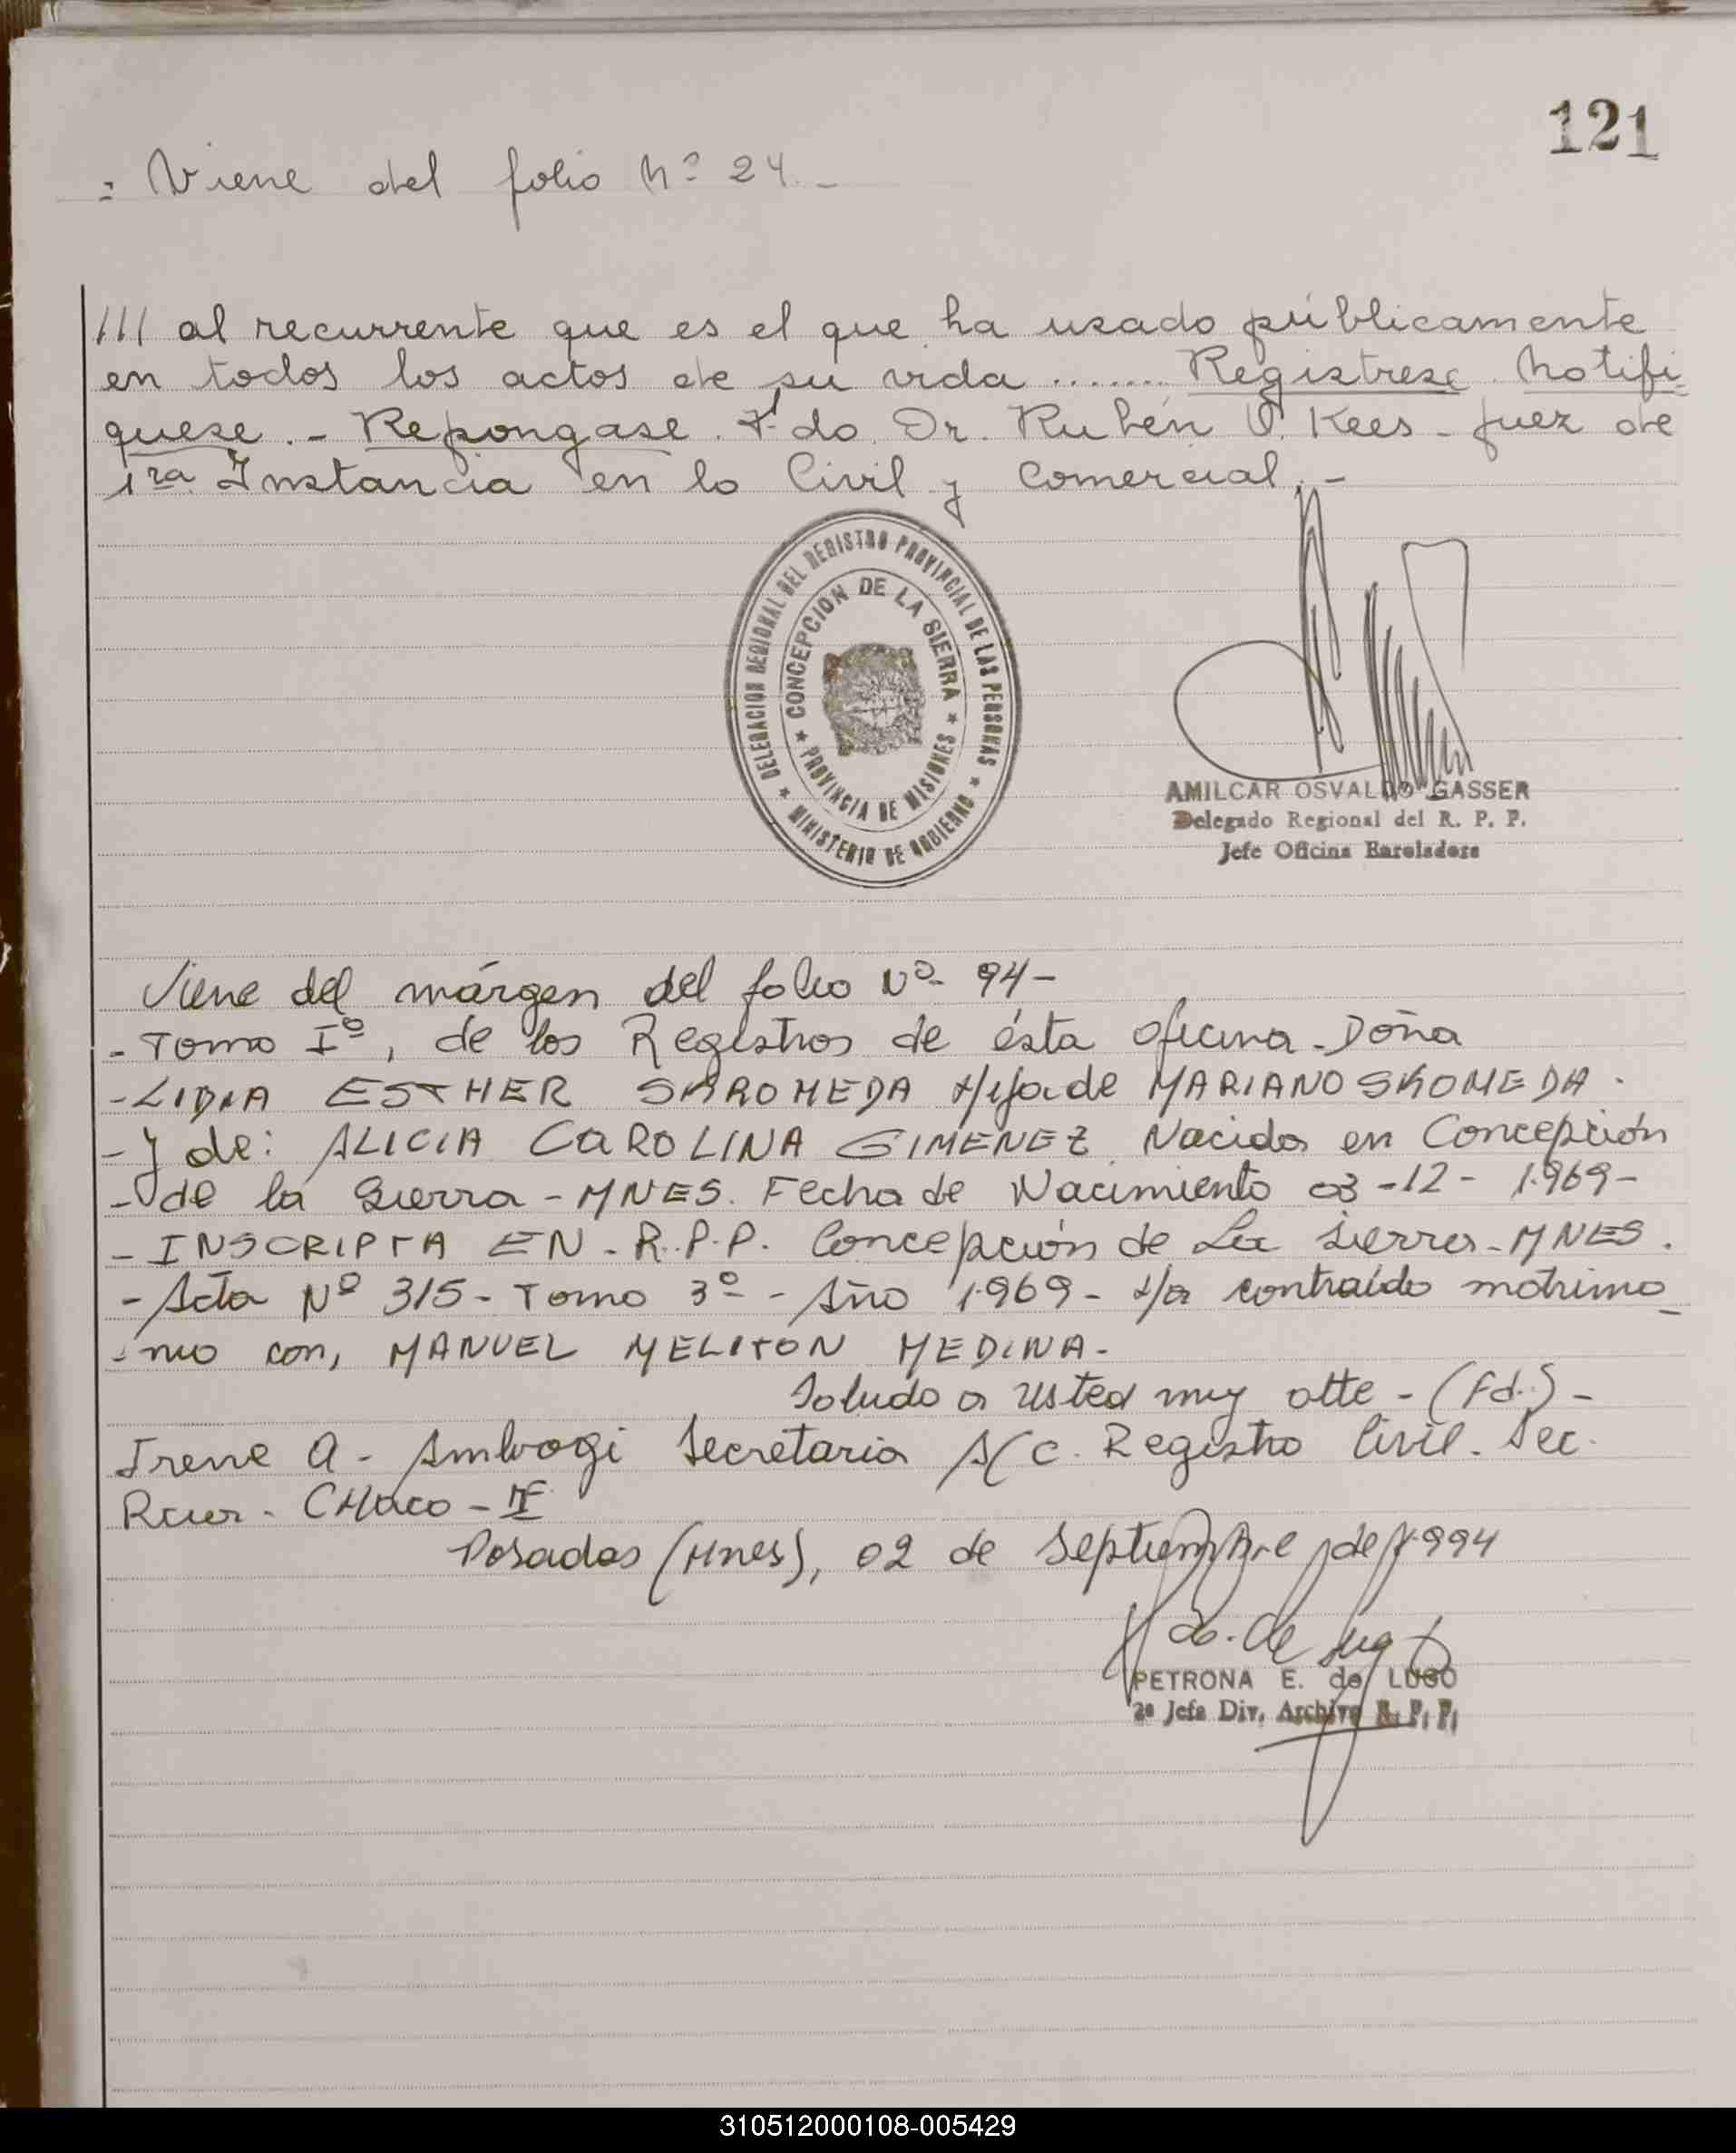 121
= Viene del folio Nº 24.-
/// al recurrente que es el que ha usado públicamente
en todos los actos de su vida ....... Registrese. Notifi-
quese.- Repongase. Fdo. Dr. Rubén O. Kees - Juez de
1ra. Instancia en lo Civil y Comercial.-
DELEGACION REGIONAL DEL REGISTRO PROVINCIAL DE LAS PERSONAS
★ MINISTERIO DE GOBIERNO ★
CONCEPCION DE LA SIERRA
★ PROVINCIA DE MISIONES ★
AMILCAR OSVALDO GASSER
Delegado Regional del R. P. P.
Jefe Oficina Enroladora
Viene del márgen del folio Nº 94-
- Tomo Iº, de los Registros de ésta oficina - Doña
- LIDIA ESTHER SKROMEDA Hija de MARIANO SKOMEDA.
- y de: ALICIA CAROLINA GIMENEZ. Nacida en Concepción
- de la Sierra - MNES. Fecha de Nacimiento 03-12-1.969-
- INSCRIPTA EN - R.P.P. Concepción de La Sierra - MNES.
- Acta Nº 315 - Tomo 3º - Año 1.969 - Ha contraído matrimo_
- nio con, MANUEL MELITON MEDINA-
Saludo a Usted muy atte - (Fd.) -
Irene A - Ambrogi Secretaria A/C. Registro Civil - Sec.
Posadas (Mnes), 02 de Septiembre de 1.994
PETRONA E. de LUGO
2º Jefe Div. Archivo R. P. P.
310512000108-005429